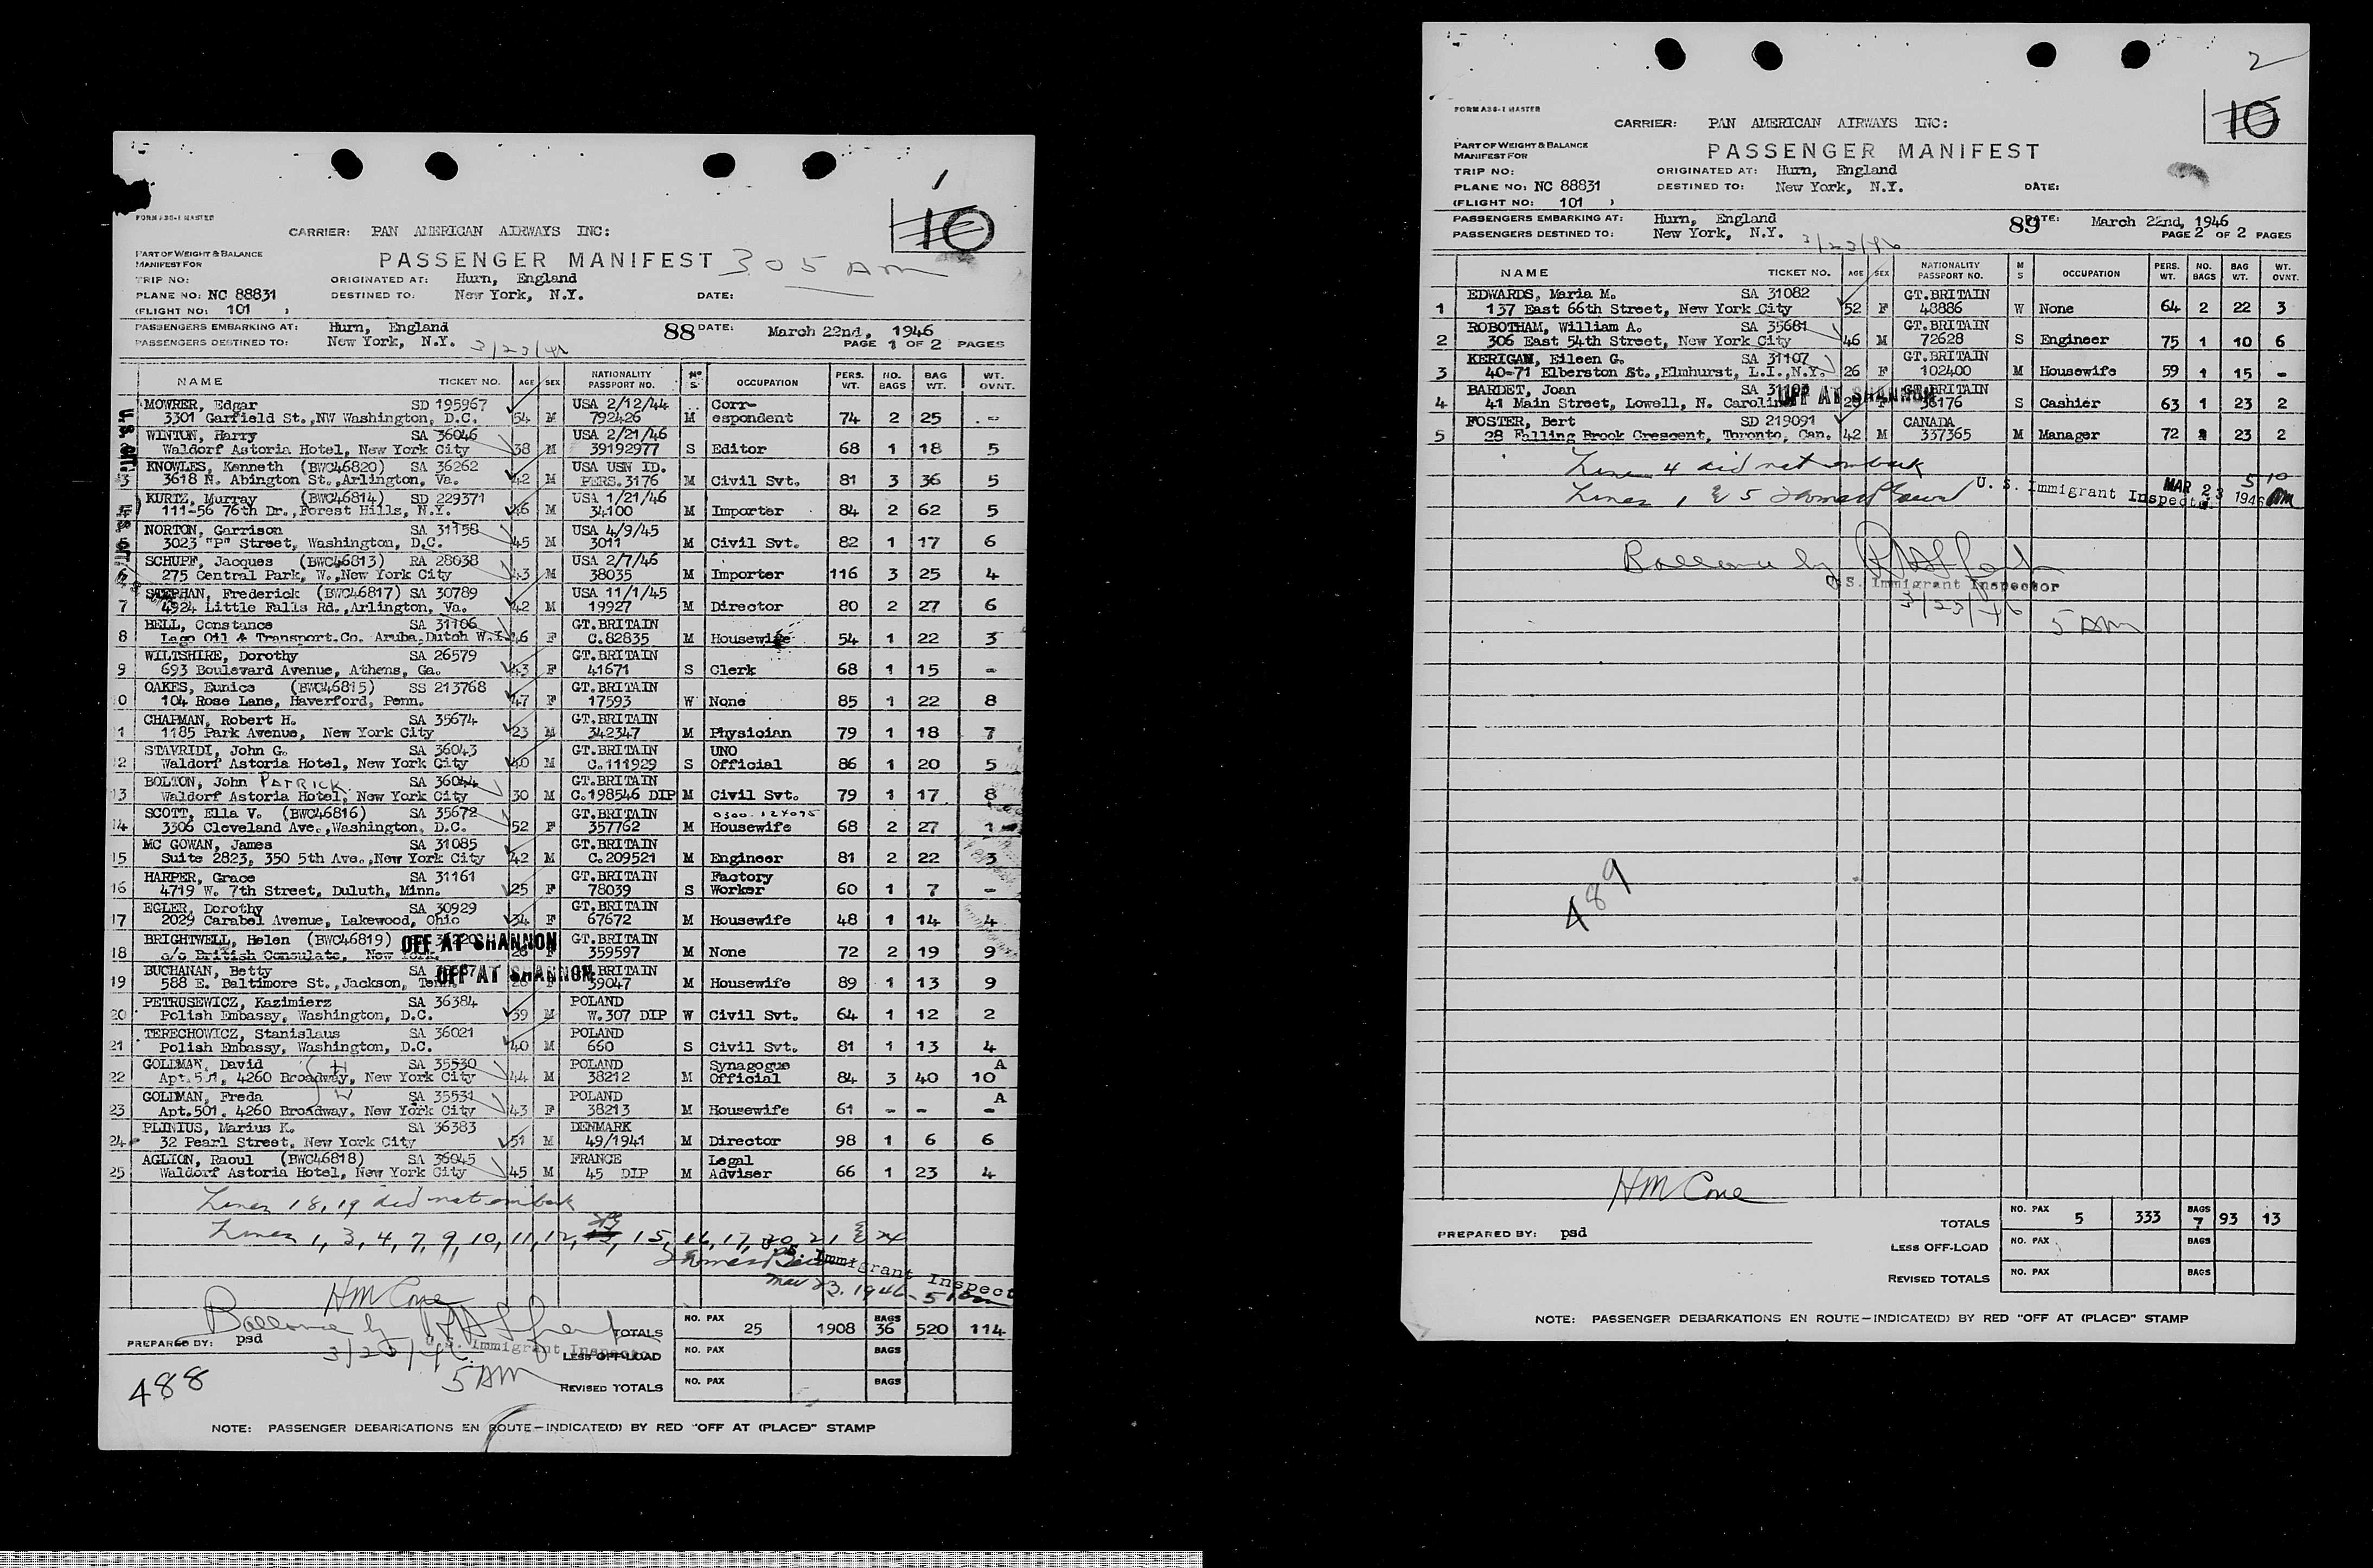 1
10
FORM A38-1 MASTER
CARRIER: PAN AMERICAN AIRWAYS INC:
PART OF WEIGHT & BALANCE
MANIFEST FOR
PASSENGER MANIFEST 305 AM
TRIP NO: ORIGINATED AT: Hurn, England
PLANE NO: NC 88831 DESTINED TO: New York, N.Y. DATE:
(FLIGHT NO: 101 )
PASSENGERS EMBARKING AT: Hurn, England 88 DATE: March 22nd, 1946
PASSENGERS DESTINED TO: New York, N.Y. 3/23/46 PAGE 1 OF 2 PAGES
NAME TICKET NO. AGE SEX NATIONALITY PASSPORT NO. M S OCCUPATION PERS. WT. NO. BAGS BAG WT. WT. OVNT.
MOWRER, Edgar SD 195967 USA 2/12/44 Corr-
3301 Garfield St.,NW Washington, D.C. 54 M 792426 M espondent 74 2 25 -
WINTON, Harry SA 36046 USA 2/21/46
Waldorf Astoria Hotel, New York City 38 M 39192977 S Editor 68 1 18 5
KNOWLES, Kenneth (BWC46820) SA 36262 USA USN ID.
3 3618 N. Abington St.,Arlington, Va. 42 M PERS.3176 M Civil Svt. 81 3 36 5
KURTZ, Murray (BWC46814) SD 229371 USA 1/21/46
111-56 76th Dr.,Forest Hills, N.Y. 46 M 34100 M Importer 84 2 62 5
NORTON, Garrison SA 31158 USA 4/9/45
3023 "P" Street, Washington, D.C. 45 M 3011 M Civil Svt. 82 1 17 6
SCHUPF, Jacques (BWC46813) RA 28038 USA 2/7/46
6 275 Central Park, W.,New York City 43 M 38035 M Importer 116 3 25 4
STEPHAN, Frederick (BWC46817) SA 30789 USA 11/1/45
7 4924 Little Falls Rd.,Arlington, Va. 42 M 19927 M Director 80 2 27 6
BELL, Constance SA 31106 GT.BRITAIN
8 Lago Oil & Transport.Co. Aruba,Dutch W.I. 46 F C.82835 M Housewife 54 1 22 3
WILTSHIRE, Dorothy SA 26579 GT.BRITAIN
9 693 Boulevard Avenue, Athens, Ga. 43 F 41671 S Clerk 68 1 15 -
OAKES, Eunice (BWC46815) SS 213768 GT.BRITAIN
0 104 Rose Lane, Haverford, Penn. 47 F 17593 W None 85 1 22 8
CHAPMAN, Robert H. SA 35674 GT.BRITAIN
1 1185 Park Avenue, New York City 23 M 342347 M Physician 79 1 18 7
STAVRIDI, John G. SA 36043 GT.BRITAIN UNO
2 Waldorf Astoria Hotel, New York City 40 M C.111929 S Official 86 1 20 5
BOLTON, John PATRICK SA 36044 GT.BRITAIN
13 Waldorf Astoria Hotel, New York City 30 M C.198546 DIP M Civil Svt. 79 1 17 8
SCOTT, Ella V. (BWC46816) SA 35672 GT.BRITAIN 0300-124095
14 3306 Cleveland Ave.,Washington, D.C. 52 F 357762 M Housewife 68 2 27 1
MC GOWAN, James SA 31085 GT.BRITAIN
15 Suite 2823, 350 5th Ave.,New York City 42 M C.209521 M Engineer 81 2 22 3
HARPER, Grace SA 31161 GT.BRITAIN Factory
16 4719 W. 7th Street, Duluth, Minn. 25 F 78039 S Worker 60 1 7 -
EGLER, Dorothy SA 30929 GT.BRITAIN
17 2029 Carabel Avenue, Lakewood, Ohio 34 F 67672 M Housewife 48 1 14 4
BRIGHTWELL, Helen (BWC46819) OFF AT SHANNON GT.BRITAIN
18 c/o British Consulate, New York. 26 F 359597 M None 72 2 19 9
BUCHANAN, Betty SA OFF AT SHANNON GT.BRITAIN
19 588 E. Baltimore St.,Jackson, Tenn. 26 F 59047 M Housewife 89 1 13 9
PETRUSEWICZ, Kazimierz SA 36384 POLAND
20 Polish Embassy, Washington, D.C. 39 M W.307 DIP W Civil Svt. 64 1 12 2
TERECHOWICZ, Stanislaus SA 36021 POLAND
21 Polish Embassy, Washington, D.C. 40 M 660 S Civil Svt. 81 1 13 4
GOLDMAN, David SA 35530 POLAND Synagogue A
22 Apt.501, 4260 Broadway, New York City 44 M 38212 M Official 84 3 40 10
GOLDMAN, Freda SA 35531 POLAND A
23 Apt.501, 4260 Broadway, New York City 43 F 38213 M Housewife 61 - - -
PLINIUS, Marius K. SA 36383 DENMARK
24 32 Pearl Street, New York City 51 M 49/1941 M Director 98 1 6 6
AGLION, Raoul (BWC46818) SA 36045 FRANCE Legal
25 Waldorf Astoria Hotel, New York City 45 M 45 DIP M Adviser 66 1 23 4
Lines 18, 19 did not embark
Lines 1, 3, 4, 7, 9, 10, 11, 12, 15, 16, 17, 20, 21 & 24
U.S. Immigrant Inspect
Mar 23, 1946 - 510am
HM Cone
NO. PAX 25 1908 BAGS 36 520 114
TOTALS
PREPARED BY: psd
Ballance by
U.S. Immigrant Inspector
3/23/46
5 AM
LESS OFF-LOAD NO. PAX BAGS
REVISED TOTALS NO. PAX BAGS
488
NOTE: PASSENGER DEBARKATIONS EN ROUTE—INDICATE(D) BY RED "OFF AT (PLACE)" STAMP
2
10
FORM A38-1 MASTER
CARRIER: PAN AMERICAN AIRWAYS INC:
PART OF WEIGHT & BALANCE
MANIFEST FOR
PASSENGER MANIFEST
TRIP NO: ORIGINATED AT: Hurn, England
PLANE NO: NC 88831 DESTINED TO: New York, N.Y. DATE:
(FLIGHT NO: 101 )
PASSENGERS EMBARKING AT: Hurn, England 89 DATE: March 22nd, 1946
PASSENGERS DESTINED TO: New York, N.Y. 3/23/46 PAGE 2 OF 2 PAGES
NAME TICKET NO. AGE SEX NATIONALITY PASSPORT NO. M S OCCUPATION PERS. WT. NO. BAGS BAG WT. WT. OVNT.
EDWARDS, Maria M. SA 31082 GT.BRITAIN
1 137 East 66th Street, New York City 52 F 48886 W None 64 2 22 3
ROBOTHAM, William A. SA 35681 GT.BRITAIN
2 306 East 54th Street, New York City 46 M 72628 S Engineer 75 1 10 6
KERIGAN, Eileen G. SA 31107 GT.BRITAIN
3 40-71 Elberston St.,Elmhurst, L.I.,N.Y. 26 F 102400 M Housewife 59 1 15 -
BARDET, Joan SA OFF AT SHANNON GT.BRITAIN
4 41 Main Street, Lowell, N. Carolina F 36176 S Cashier 63 1 23 2
FOSTER, Bert SD 219091 CANADA
5 28 Falling Brook Crescent, Toronto, Can. 42 M 337365 M Manager 72 23 2
Line 4 did not embark
Lines 1 & 5
U. S. Immigrant Inspector MAR 23 1946 5 10 AM
Ballance by
U.S. Immigrant Inspector
3/23/46
5 AM
489
HM Cone
NO. PAX 5 333 BAGS 7 93 13
TOTALS
PREPARED BY: psd
LESS OFF-LOAD NO. PAX BAGS
REVISED TOTALS NO. PAX BAGS
NOTE: PASSENGER DEBARKATIONS EN ROUTE—INDICATE(D) BY RED "OFF AT (PLACE)" STAMP